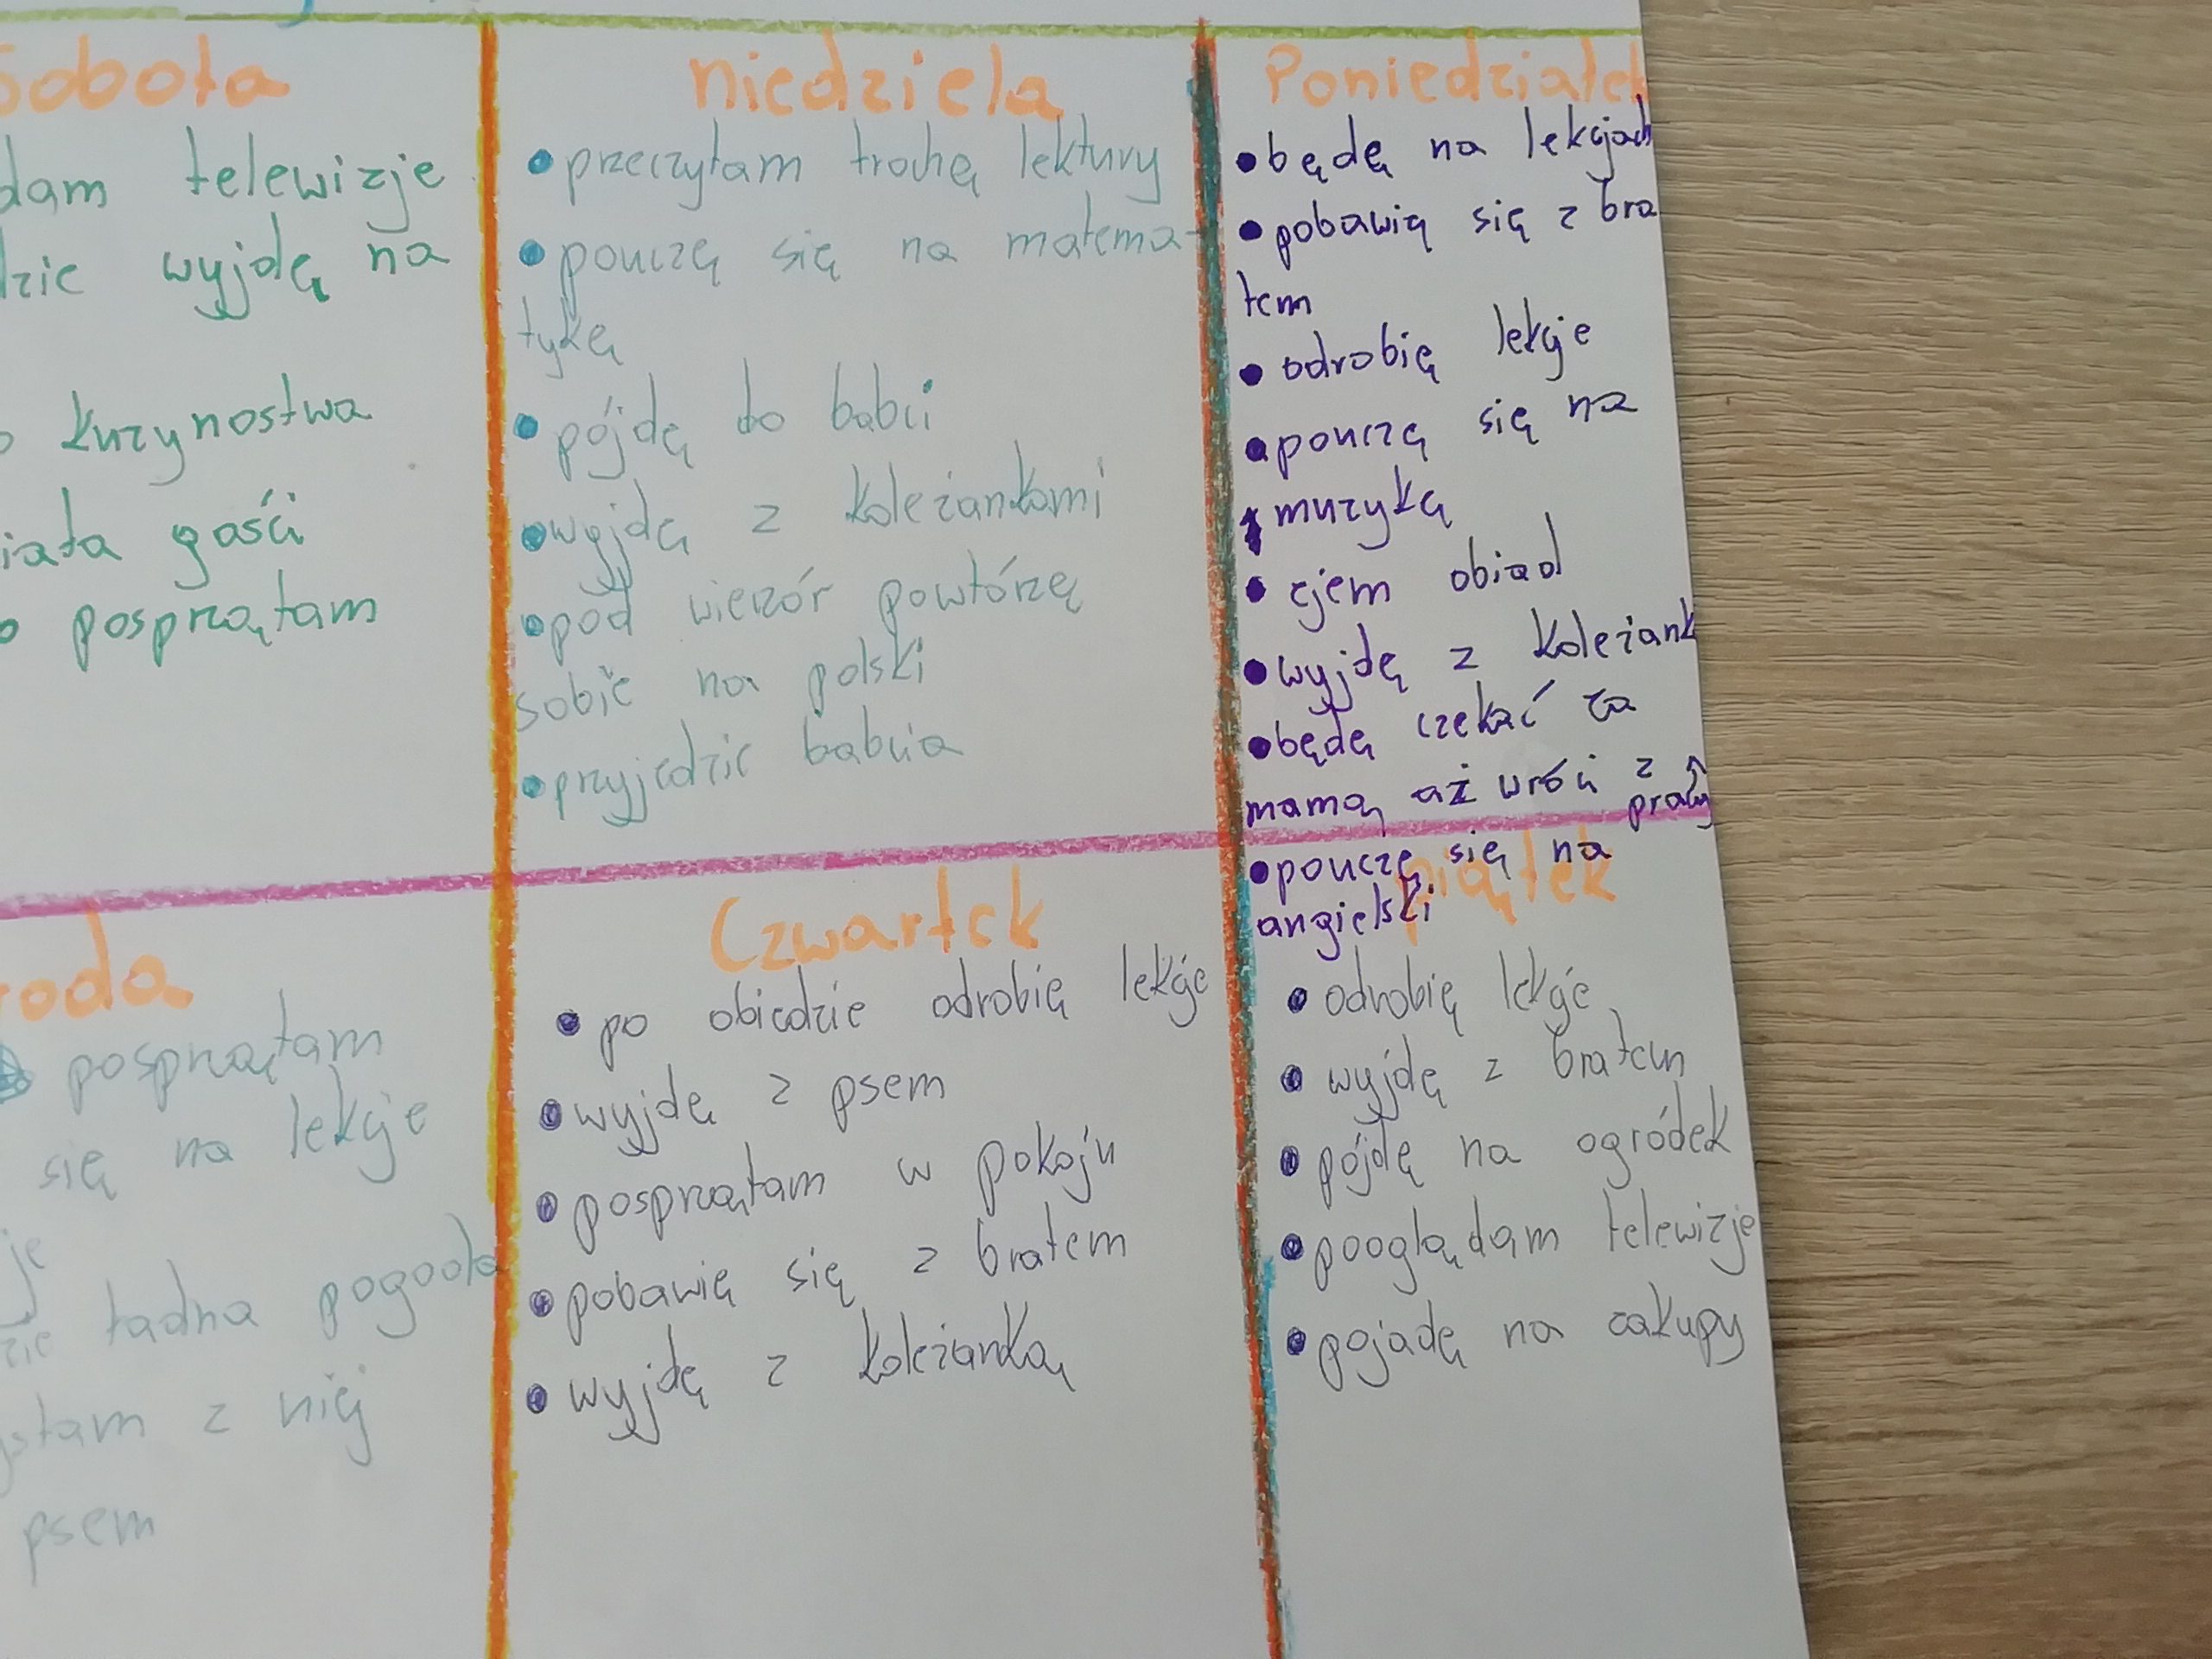 Sobota
dam telewizje
dzie wyjdę na
kuzynostwa
iata gości
posprzątam
niedziela
•przeczytam trochę lektury
•pouczę się na matema-
tykę
•pójdę do babci
•wyjdę z koleżankami
•pod wieczór powtórzę
sobie na polski
•przyjedzie babcia
Poniedziałek
•będę na lekcjach
•pobawię się z bra
tem
• odrobię lekcje
•pouczę się na
muzykę
• zjem obiad
•wyjdę z koleżank
•będę czekać za
mamą aż wróci z pracy
•pouczę się na
angielski
roda
posprzątam
się na lekcje
je
zie ładna pogoda
ystam z niej
psem
Czwartek
• po obiedzie odrobię lekcje
•wyjdę z psem
•posprzątam w pokoju
•pobawię się z bratem
• wyjdę z koleżanką
piątek
• odrobię lekcje
• wyjdę z bratem
•pójdę na ogródek
•pooglądam telewizje
•pojadę na zakupy